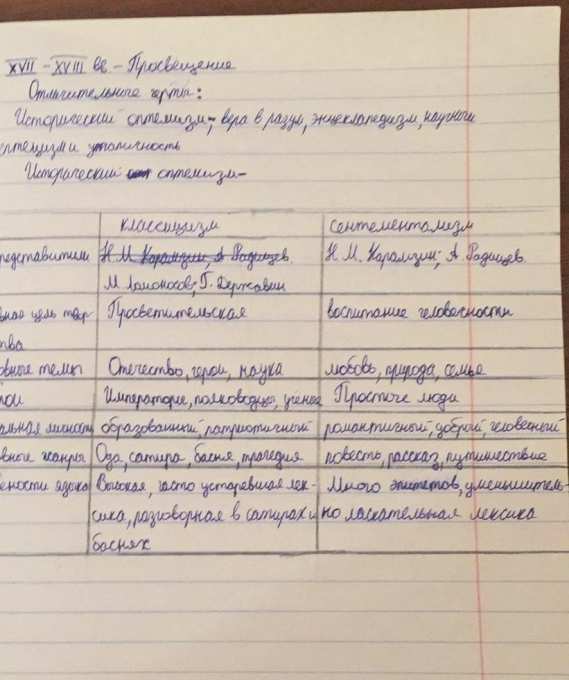 XVII – XVIII вв. – Просвещение
Отличительные черты:
Исторический оптемизм, вера в разум, энциклопедизм, научный
оптемизм и утопичность
Исторический оптемизм–
классицизм сентементализм
редставители Н.М. Карамзин, А Радищев Н. М. Карамзин, А. Радищев
М Ломоносов, Г. Державин
вная цель твор Просветительская воспитание человечности
тва
овные темы Отечество, герои, наука любовь, природа, семья
рои Императоры, полководцы, ученые Простые люди
альная личность образованный патриотичный романтичный, добрый, человечный
вные жанры Ода, сатира, басня, трагедия повесть, рассказ, путишествие
бености языка Высокая, часто устаревшая лек- Много эпитетов, уменьшитель-
сика, разговорная в сатирах и но ласкательная лексика
баснях